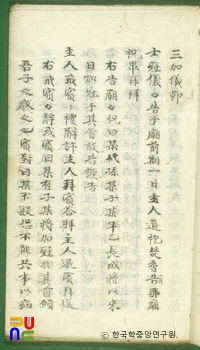 三加儀節
士冠儀○告于廟前期一日主人道袍焚香告再廟
祝畢再拜
右告廟○祝曰某代孫某子某年已長成將以來
日加冠于其首敢告謹告
主人戒賓○禮辭許主人再拜賓答拜主人退賓拜送
右戒賓○辭戒賓曰某有子某將加冠於其首願
吾子之教之也賓對曰某不敏恐不能共事以病
한국학중앙연구원